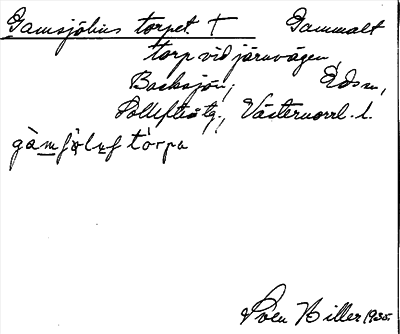 Gamsjölius torpet † Gammalt
torp vid järnvägen,
Backsjön, Eds sn,
Sollefteå tg., Västernorrl. l.
gàmʃö̀lɩʃ tòrpa
Sven Hiller 1935.